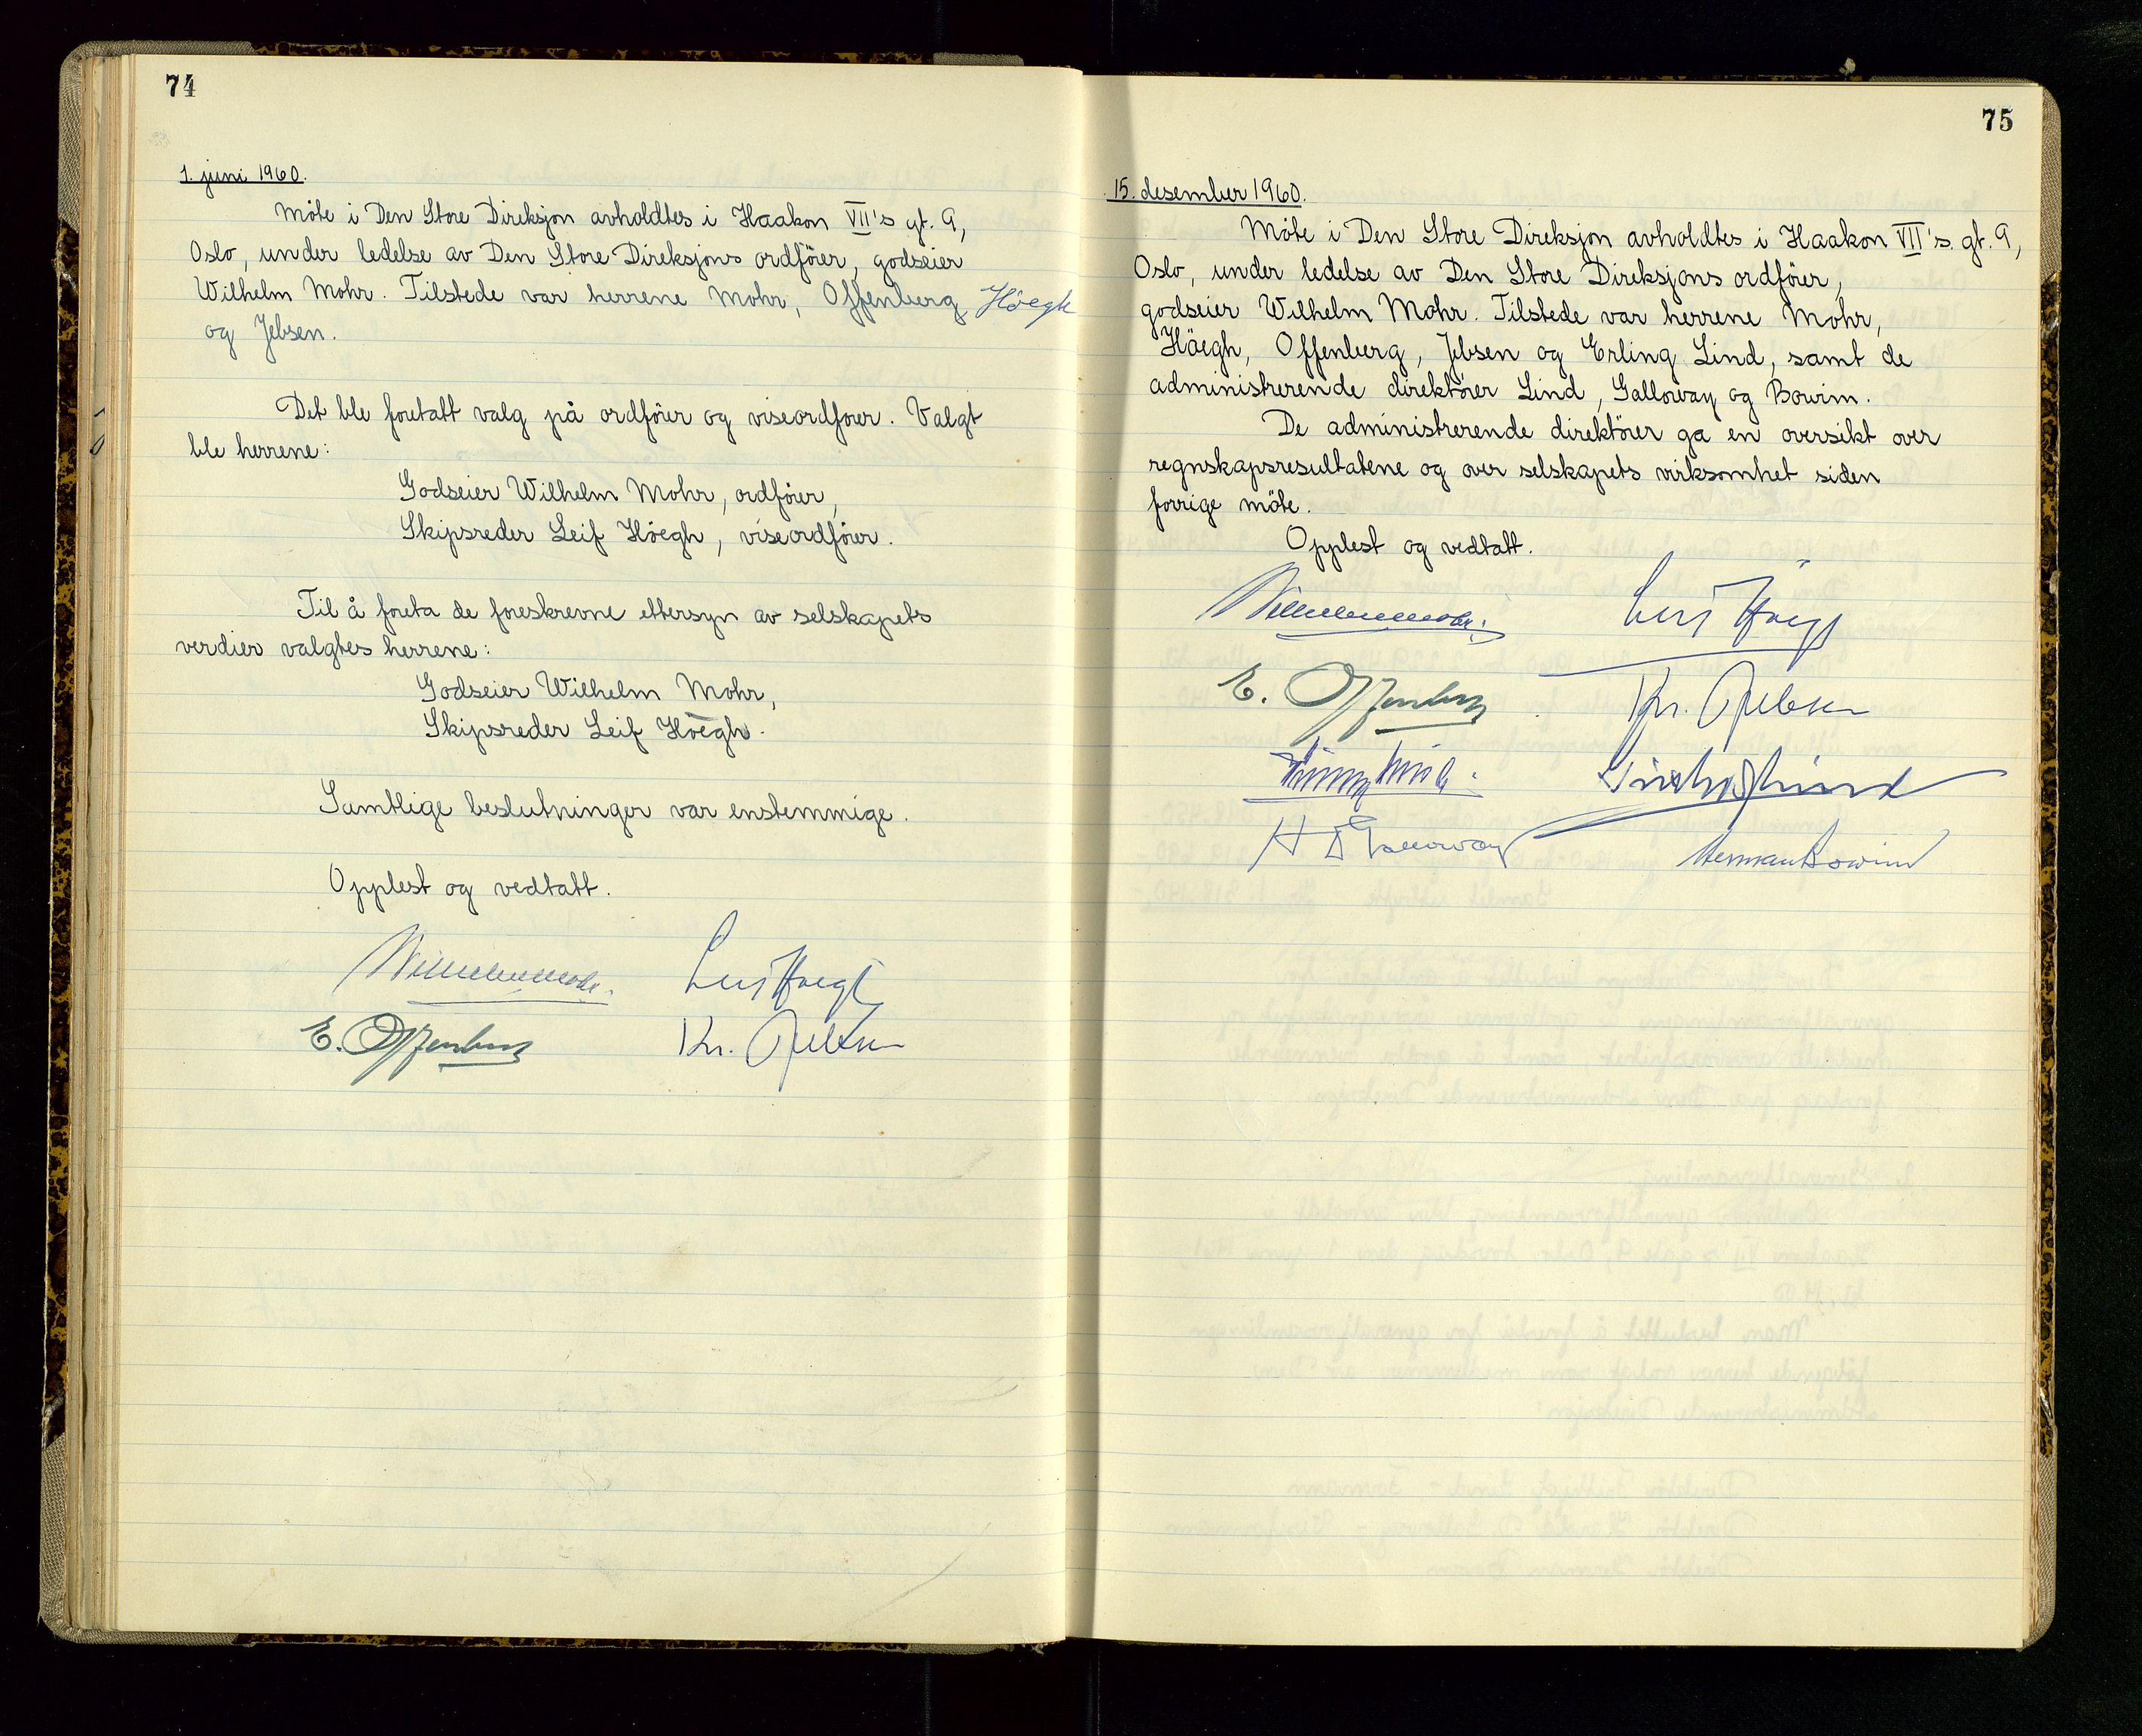 74
1. juni 1960.
Möte i Den Store Direksjon avholdtes i Haakon VII's gt. 9,
Oslo, under ledelse av Den Store Direksjons ordförer, godseier
Wilhelm Mohr. Tilstede var herrene Mohr, Offenberg, Höegh
og Jebsen.
Det ble foretatt valg på ordförer og viseordförer. Valgt
ble herrene:
Godseier Wilhelm Mohr, ordförer,
Skipsreder Leif Höegh, viseordförer.
Til å foreta de foreskrevne ettersyn av selskapets
verdier valgtes herrene:
Godseier Wilhelm Mohr,
Skipsreder Leif Höegh.
Samtlige beslutninger var enstemmige.
Opplest og vedtatt.
Wilhelm Mohr. Leif Höegh
E. Offenberg Kr. Jebsen
75
15. desember 1960.
Möte i Den Store Direksjon avholdtes i Haakon VII's. gt. 9,
Oslo, under ledelse av Den Store Direksjons ordförer,
godseier Wilhelm Mohr. Tilstede var herrene Mohr,
Höegh, Offenberg, Jebsen og Erling Lind, samt de
administrerende direktörer Lind, Galloway og Bowim.
De administrerende direktörer ga en oversikt over
regnskapsresultatene og over selskapets virksomhet siden
forrige möte.
Opplest og vedtatt.
Wilhelm Mohr. Leif Höegh
E. Offenberg Kr. Jebsen
Erling Lind. Lind
H D Galloway Herman Bowim